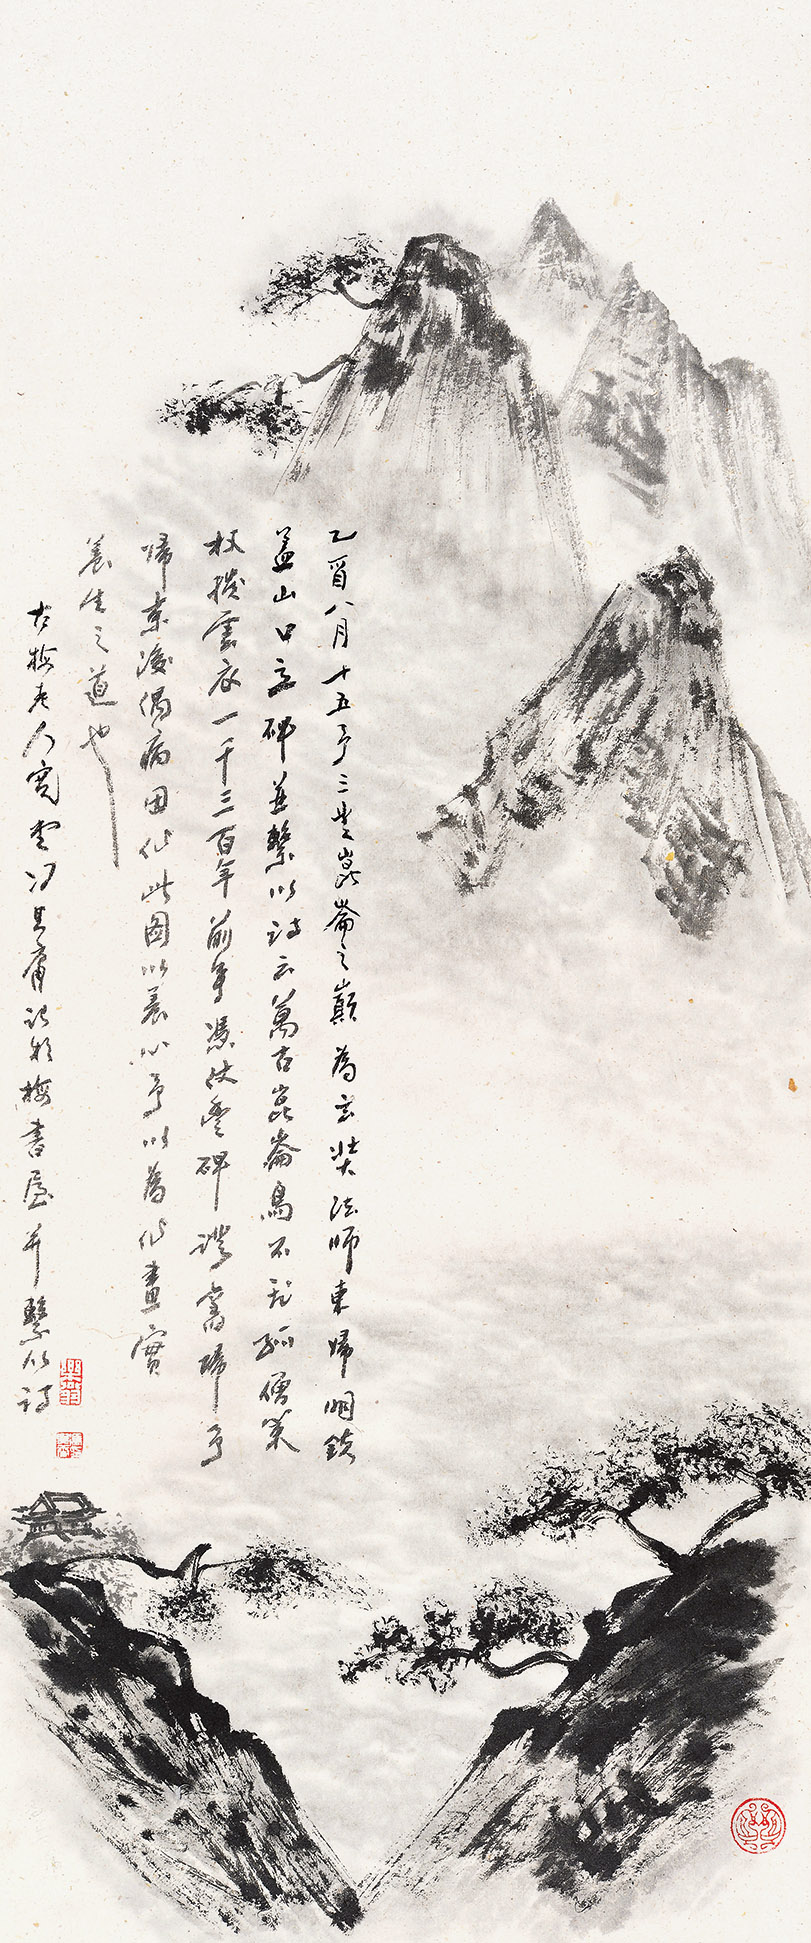 乙酉八月十五予三登崑崙之巔為玄奘法師東歸明鉄
蓋山口立碑並繫以詩云萬古崑崙鳥不飛孤僧策
杖撥雲衣一千三百年前事憑仗豐碑證舊歸予
歸京後偶病因作此圖以養心予以為作畫實
養生之道也
古梅老人寬堂馮其庸記於梅書屋并繫以詩